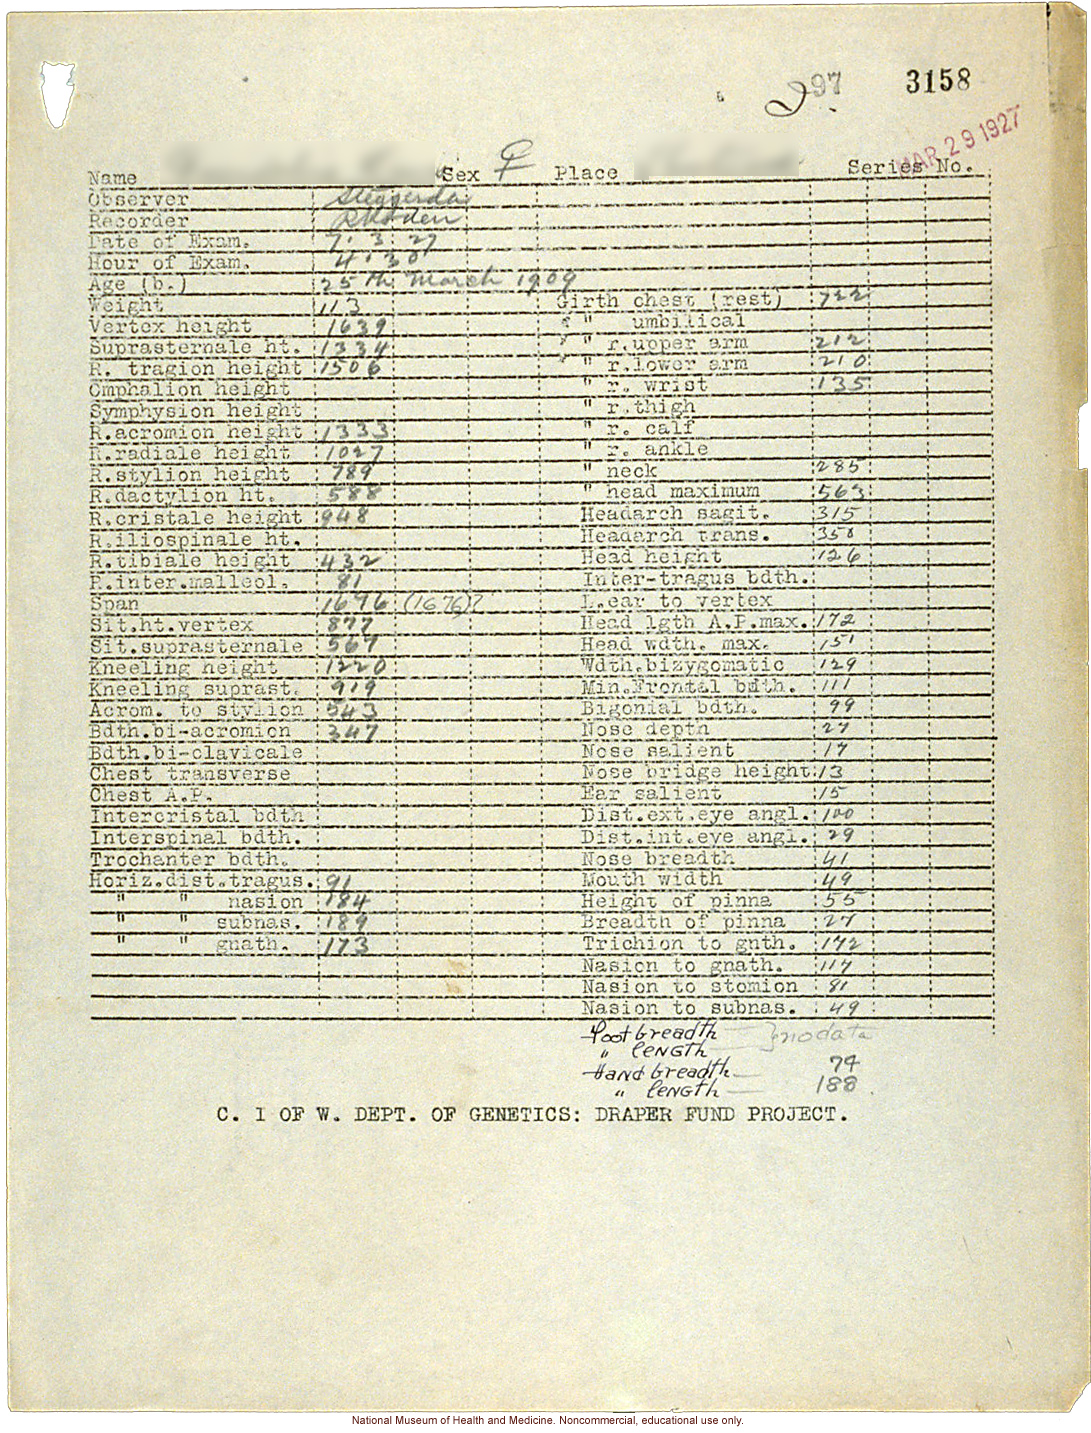 97 3158
MAR 29 1927
Name Sex ♀ Place Series No.
Observer Steggerda
Recorder Rhoden
Date of Exam. 7. 3. 27
Hour of Exam. 4.30
Age (b.) 25th March 1909
Weight 113
Vertex height 1639
Suprasternale ht. 1334
R. tragion height 1506
Omphalion height
Symphysion height
R.acromion height 1333
R.radiale height 1027
R.stylion height 789
R.dactylion ht. 588
R.cristale height 948
R.iliospinale ht.
R.tibiale height 432
R.inter.malleol. 81
Span 1696 (1676)?
Sit.ht.vertex 877
Sit.suprasternale 567
Kneeling height 1220
Kneeling suprast. 919
Acrom. to stylion 543
Bdth.bi-acromion 347
Bdth.bi-clavicale
Chest transverse
Chest A.P.
Intercristal bdth
Interspinal bdth.
Trochanter bdth.
Horiz.dist.tragus. 91
" " nasion 184
" " subnas. 189
" " gnath. 173
Girth chest (rest) 722
" umbilical
" r.upper arm 212
" r.lower arm 210
" r. wrist 135
" r.thigh
" r. calf
" r. ankle
" neck 285
" head maximum 563
Headarch sagit. 315
Headarch trans. 358
Head height 126
Inter-tragus bdth.
L.ear to vertex
Head lgth A.P.max. 172
Head wdth. max. 151
Wdth.bizygomatic 129
Min.Frontal bdth. 111
Bigonial bdth. 99
Nose depth 27
Nose salient 17
Nose bridge height 13
Ear salient 15
Dist.ext.eye angl. 100
Dist.int.eye angl. 29
Nose breadth 41
Mouth width 49
Height of pinna 55
Breadth of pinna 27
Trichion to gnth. 172
Nasion to gnath. 117
Nasion to stomion 81
Nasion to subnas. 49
Foot breadth — } no data
" LENGTH —
Hand breadth — 74
" LENGTH — 188
C. I OF W. DEPT. OF GENETICS: DRAPER FUND PROJECT.
National Museum of Health and Medicine. Noncommercial, educational use only.